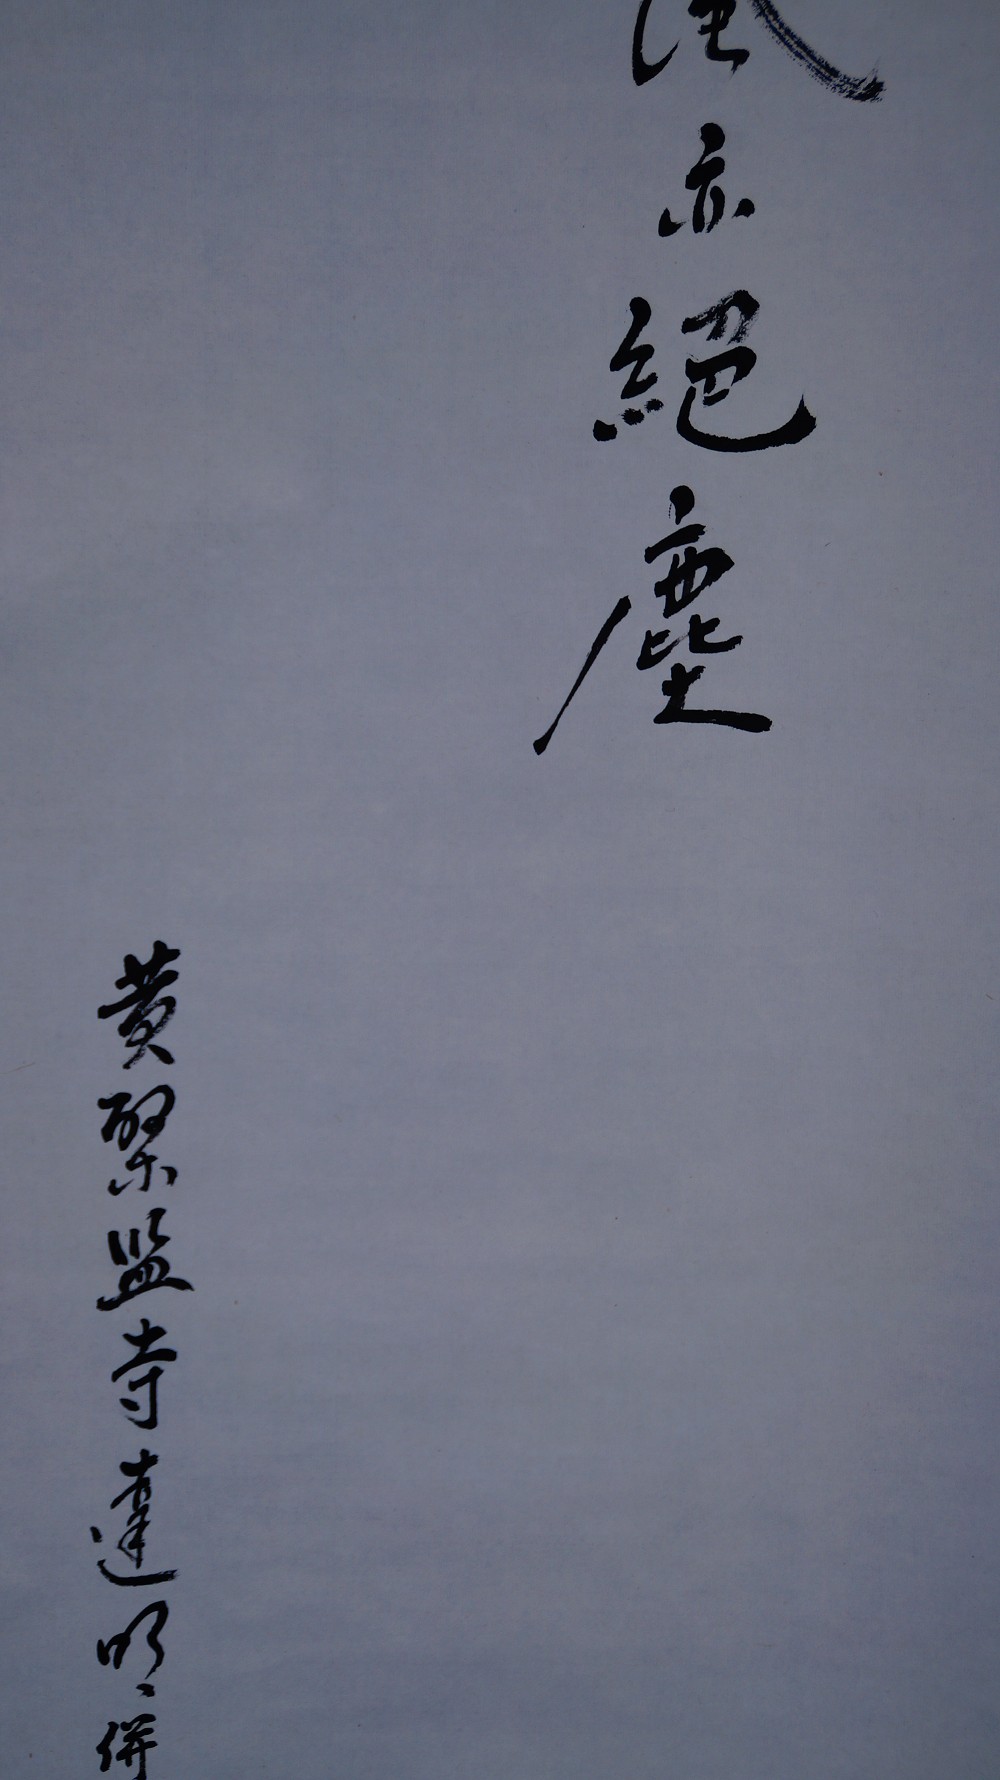 風亦絕塵
黄檗監寺達明併